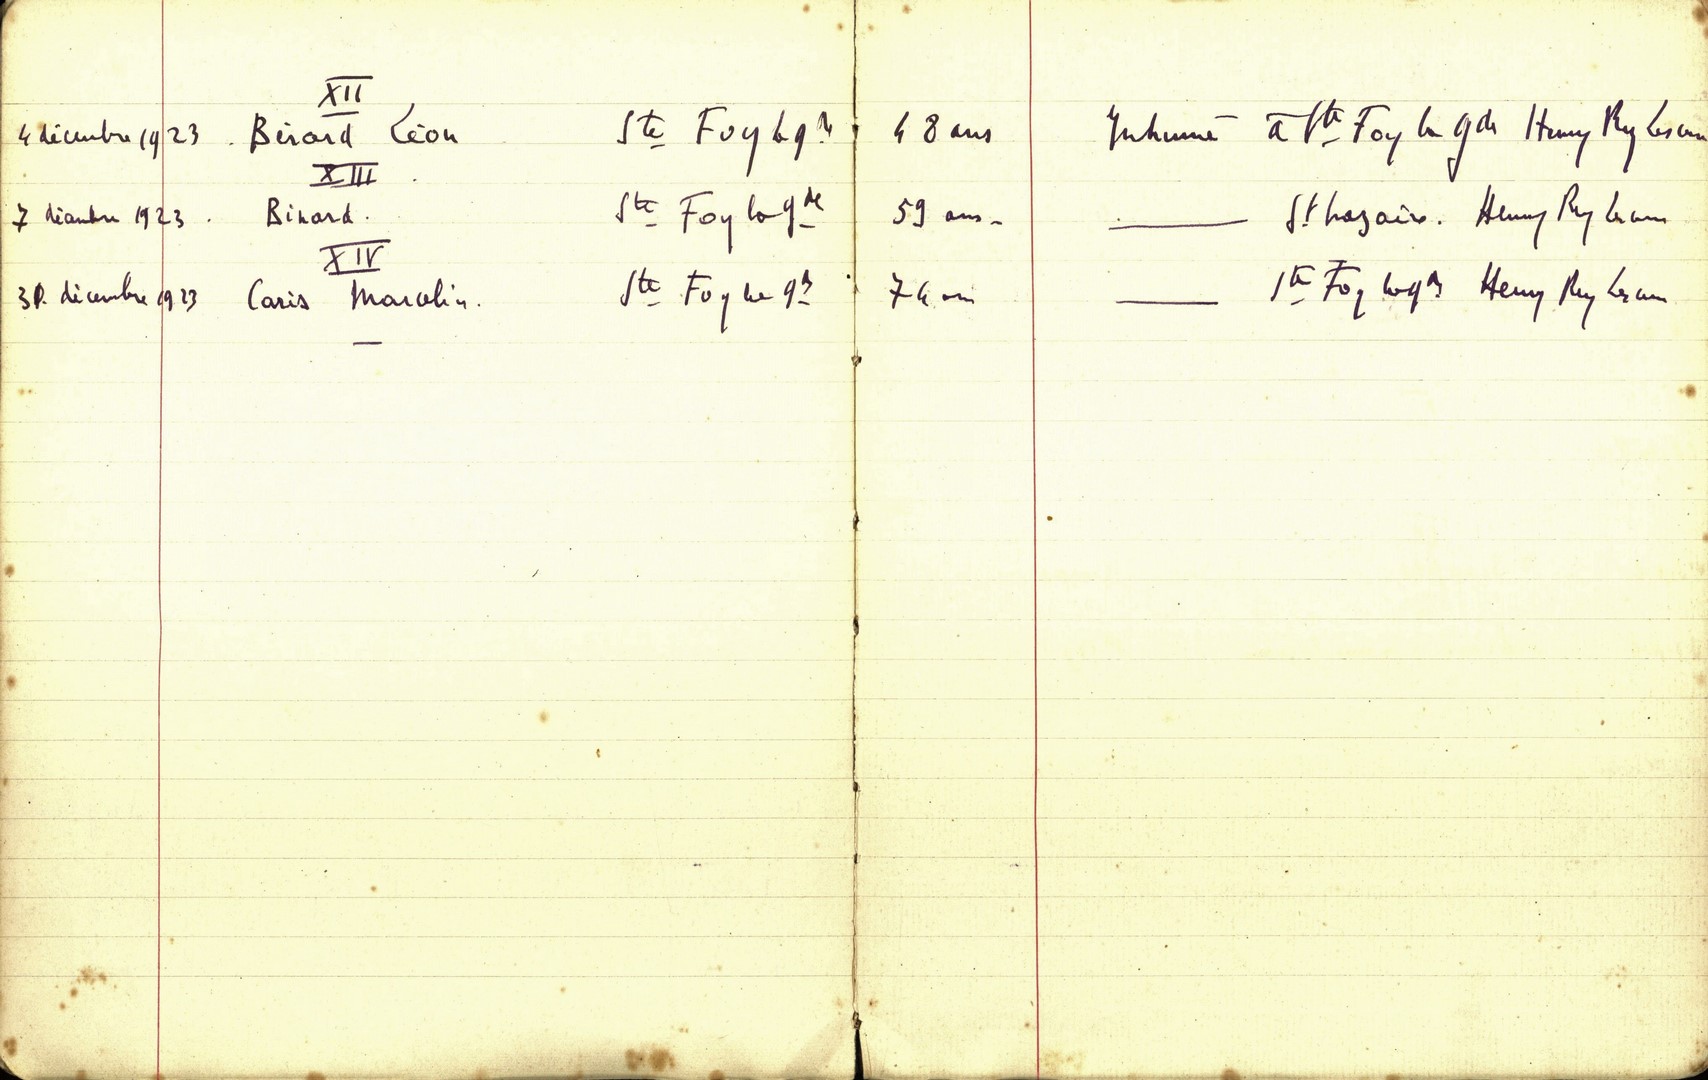 XII
4 décembre 1923. Bérard Léon Ste Foy la gde 48 ans Inhumé à Ste Foy la gde Henry Rey Lescure
XIII
7 décembre 1923. Binard. Ste Foy la gde 59 ans - St Nazaire. Henry Rey Lescure
XIV
décembre 1923 Caris Marcelin. Ste Foy la gde 74 ans Ste Foy la gde Henry Rey Lescure